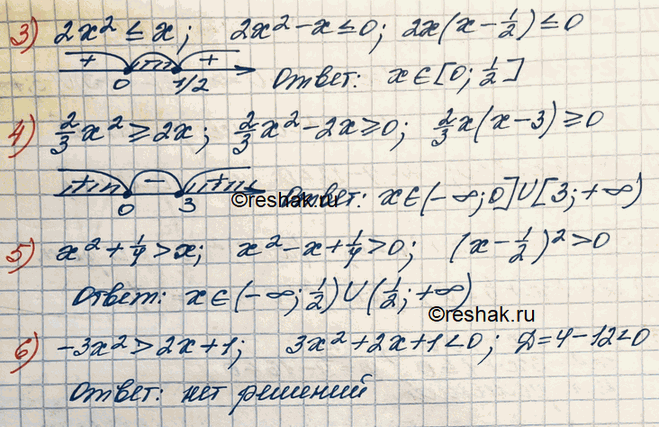 3) 2x² ≤ x; 2x² - x ≤ 0; 2x(x - 1/2) ≤ 0
+ - +
0 1/2 Ответ: x ∈ [0; 1/2]
4) 2/3 x² ≥ 2x; 2/3 x² - 2x ≥ 0; 2/3 x(x - 3) ≥ 0
+ - +
0 3 Ответ: x ∈ (-∞; 0] ∪ [3; +∞)
©reshak.ru
5) x² + 1/4 > x; x² - x + 1/4 > 0; (x - 1/2)² > 0
Ответ: x ∈ (-∞; 1/2) ∪ (1/2; +∞)
©reshak.ru
6) -3x² > 2x + 1; 3x² + 2x + 1 < 0; Д = 4 - 12 < 0
Ответ: нет решений